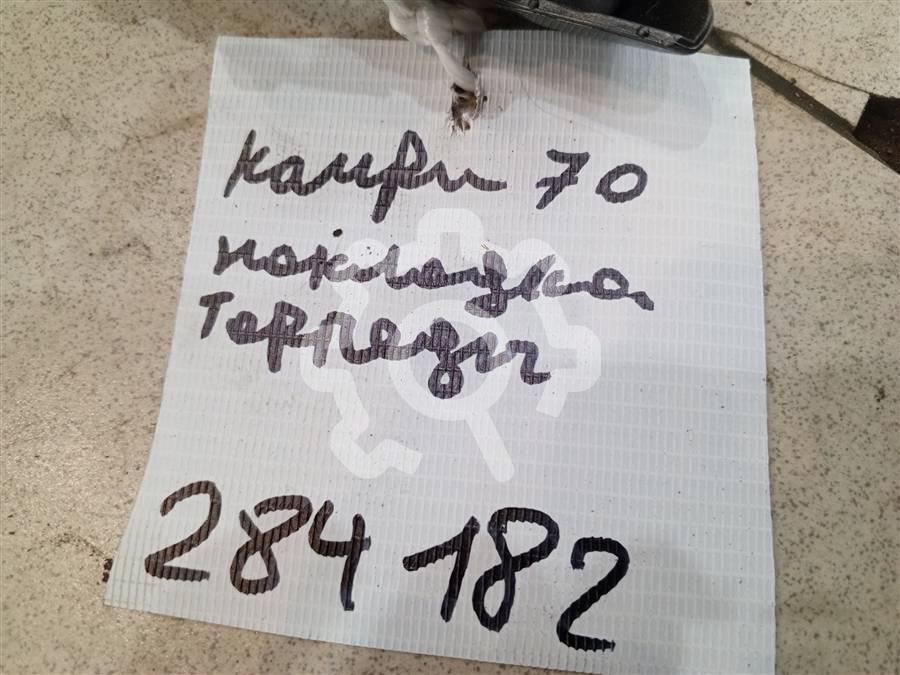 камри 70
накладка
торпеды
284 182